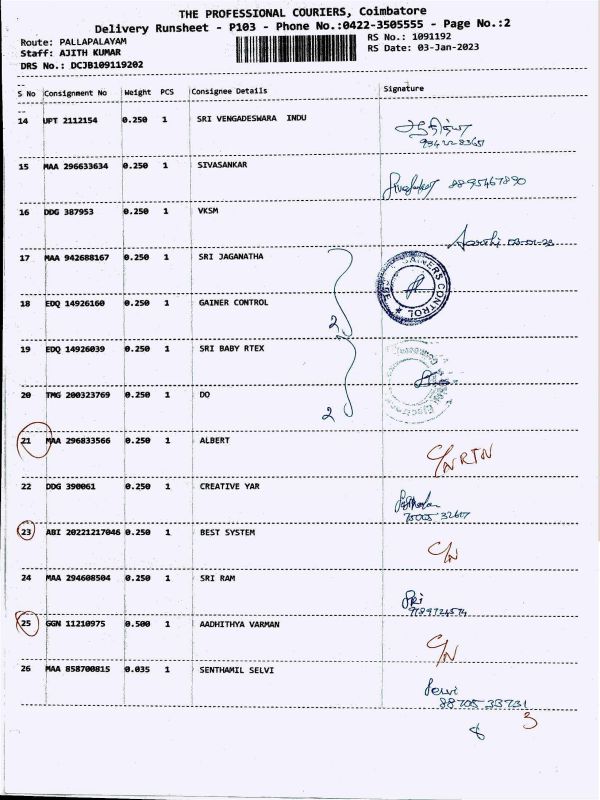 THE PROFESSIONAL COURIERS, Coimbatore
Delivery Runsheet - P103 - Phone No.:0422-3505555 - Page No.:2
Route: PALLAPALAYAM RS No.: 1091192
Staff: AJITH KUMAR RS Date: 03-Jan-2023
DRS No.: DCJB109119202
S No Consignment No Weight PCS Consignee Details Signature
14 UPT 2112154 0.250 1 SRI VENGADESWARA INDU
15 MAA 296633634 0.250 1 SIVASANKAR
8895467890
16 DDG 387953 0.250 1 VKSM
Aarthi 03-01-23
17 MAA 942688167 0.250 1 SRI JAGANATHA
18 EDQ 14926160 0.250 1 GAINER CONTROL
2
19 EDQ 14926039 0.250 1 SRI BABY RTEX
20 TMG 200323769 0.250 1 DO
2
21 MAA 296833566 0.250 1 ALBERT
C/N RTN
22 DDG 390061 0.250 1 CREATIVE YAR
23 ABI 20221217046 0.250 1 BEST SYSTEM
C/N
24 MAA 294608504 0.250 1 SRI RAM
Sri
25 GGN 11210975 0.500 1 AADHITHYA VARMAN
C/N
26 MAA 858700815 0.035 1 SENTHAMIL SELVI
Selvi
88705 33731
8 3